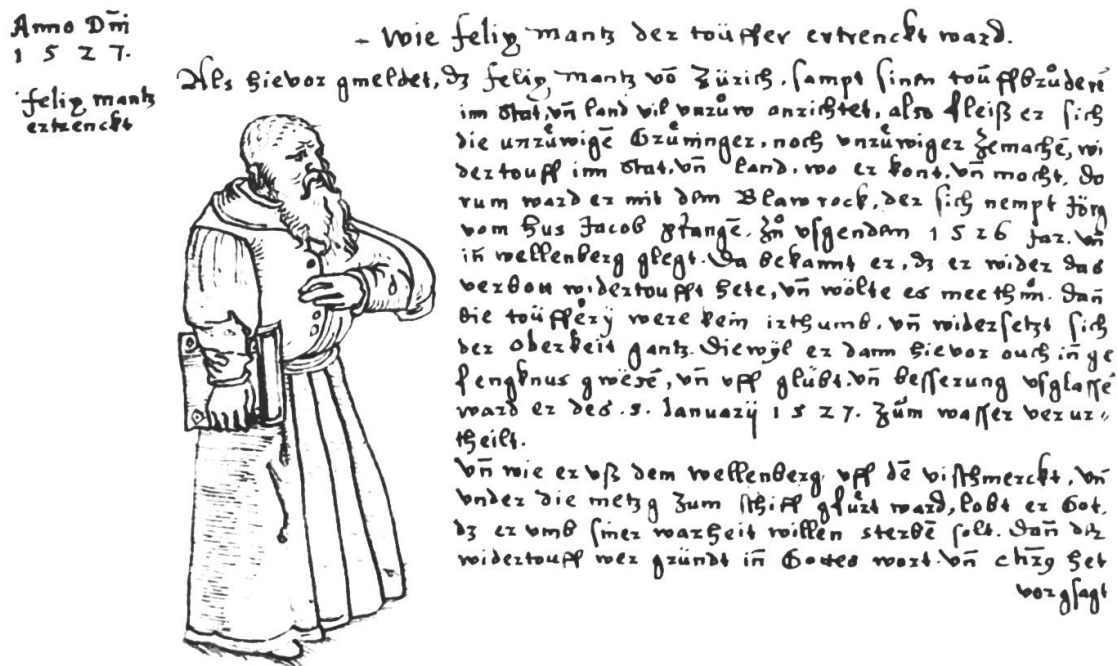 Anno Dm̄i
1 5 2 7.
felix mantz
ertrenckt
- Wie felix mantz der töüffer ertrenckt ward.
Als hievor gmeldet, dz felix mantz vō Zürich, sampt sinen toüffbrüderē
im Stat, vn̄ land vil vnrůw anrichtet, also fleiß er sich
die unrůwigē Grüninger, noch vnrůwiger zemachē, wi
dertouff inn Stat, vn̄ land, wo er kont, vn̄ mocht, do
rum ward er mit dem Blawrock, der sich nempt Jörg
vom hus Jacob gfangē, Zů vsgendem 1526 Jar, vn̄
in̄ wellenberg glegt. Da bekannt er, dz er wider das
verbott widertoufft hete, vn̄ wölte es mee thůn. Dan̄
die toüfferÿ were kein irthumb, vn̄ widersetzt sich
der oberkeit gantz. Diewÿl er dann hievor ouch in̄ ge
fengknus gwesē, vn̄ vff glübt, vn̄ besserung vsglassē
ward er des .5. Januarÿ 1527. Zům wasser verur„
theilt.
Vn̄ wie er vß dem wellenberg vff dē vischmerckt, vn̄
vnder die metzg zum schiff gfürt ward, lobt er Got,
dz er vmb siner warheit willen sterbē solt. Dan̄ der
widertouff wer gründt in̄ Gottes wort. vn̄ chr̄9 het
vorgsagt